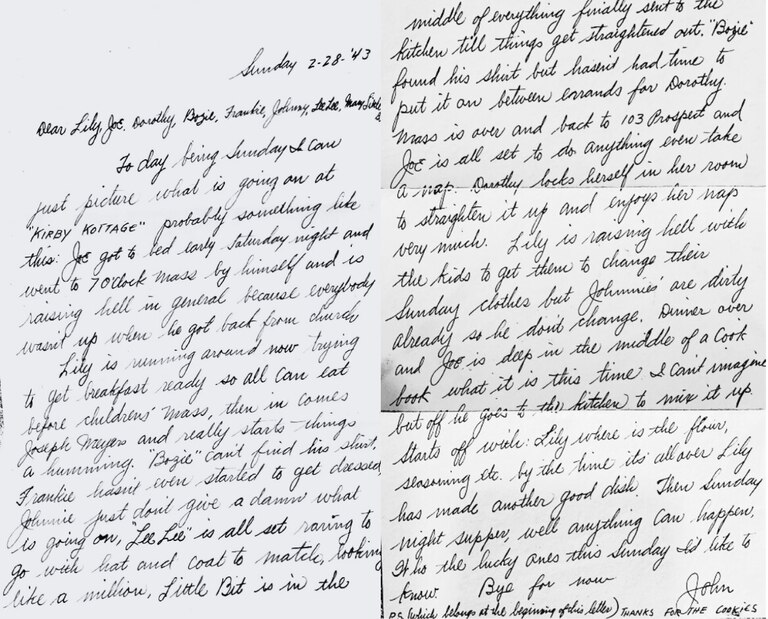 Sunday 2-28-'43
Dear Lily, Joe, Dorothy, Bozie, Frankie, Johnny, LeeLee, Mary,
To day being Sunday I can
just picture what is going on at
"KIRBY KOTTAGE" probably something like
this: Joe got to bed early Saturday night and
went to 7 O'Clock Mass by himself and is
raising hell in general because everybody
wasn't up when he got back from church
Lily is running around now trying
to get breakfast ready so all can eat
before childrens' Mass, then in comes
Joseph Meyers and really starts things
a humming. "Bozie" can't find his shirt,
Frankie hasn't even started to get dressed
Johnnie just don't give a damn what
is going on, "Lee Lee" is all set raring to
go with hat and coat to match, looking
like a million, Little Bit is in the
middle of everything finally sent to the
kitchen till things get straightened out. "Bozie"
found his shirt but hasen't had time to
put it on between errands for Dorothy.
Mass is over and back to 103 Prospect and
Joe is all set to do anything even take
a nap. Dorothy locks herself in her room
to straighten it up and enjoys her nap
very much. Lily is raising hell with
the kids to get them to change their
Sunday clothes but Johnnies' are dirty
already so he don't change. Dinner over
and Joe is deep in the middle of a Cook
book what it is this time I can't imagine
but off he goes to the kitchen to mix it up.
Starts off with: Lily where is the flour,
seasoning etc. by the time its all over Lily
has made another good dish. Then Sunday
night supper, well anything can happen.
Who the lucky ones this Sunday I'd like to
know. Bye for now
John
P.S. (which belongs at the beginning of this letter) THANKS FOR THE COOKIES